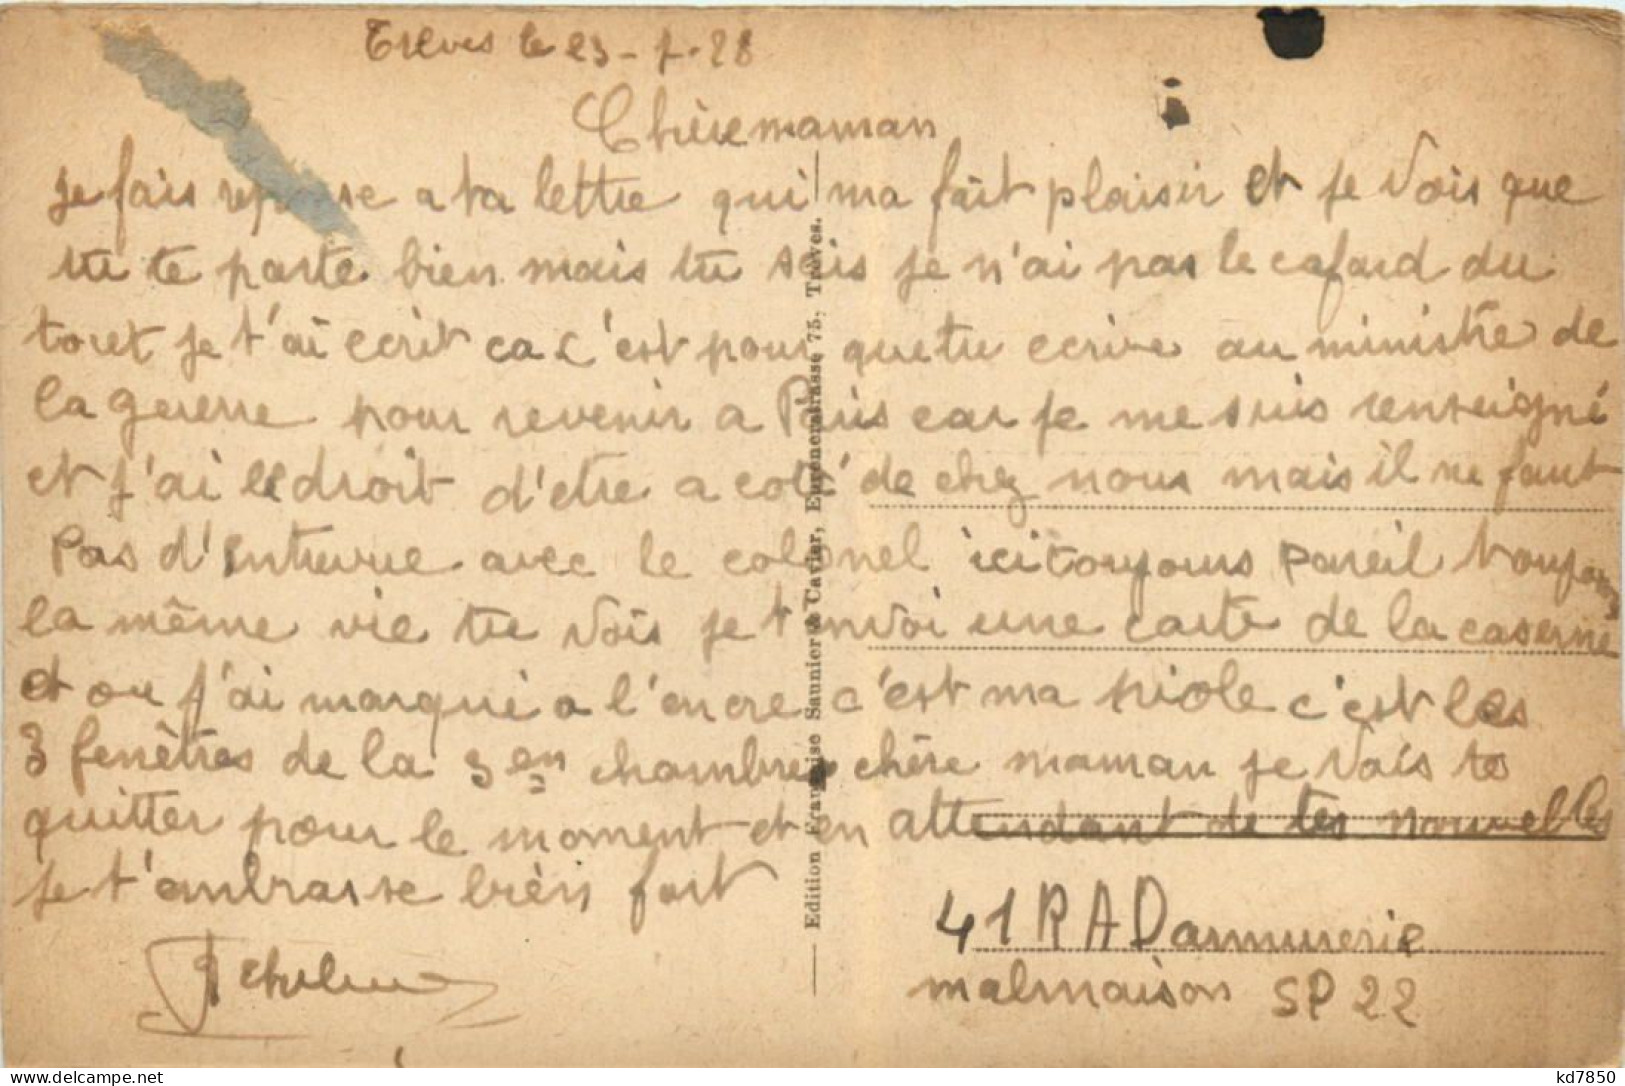 Treves le 23-7-28
Chère maman
Je fais reponse a ta lettre qui ma fait plaisir et je vois que
tu te porte bien mais tu sais je n'ai pas le cafard du
tout je t'ai ecrit ca c'est pour que tu ecrive au ministre de
la guerre pour revenir a Paris car je me suis renseigné
et j'ai le droit d'etre a coté de chez nous mais il ne faut
Pas d'entrevue avec le colonel ici toujours pareil toujours
la même vie tu vois je t'envoi une carte de la caserne
et ou j'ai marqué a l'encre c'est ma piole c'est les
3 fenêtres de la 3en chambre chère maman je vais te
quitter pour le moment et en attendant de tes nouvelles
je t'embrasse bien fort
41 RAD armurerie
malmaison SP 22
Edition Française Saunier & Cavier, Eugenerstrasse 75, Trèves.
kd7850